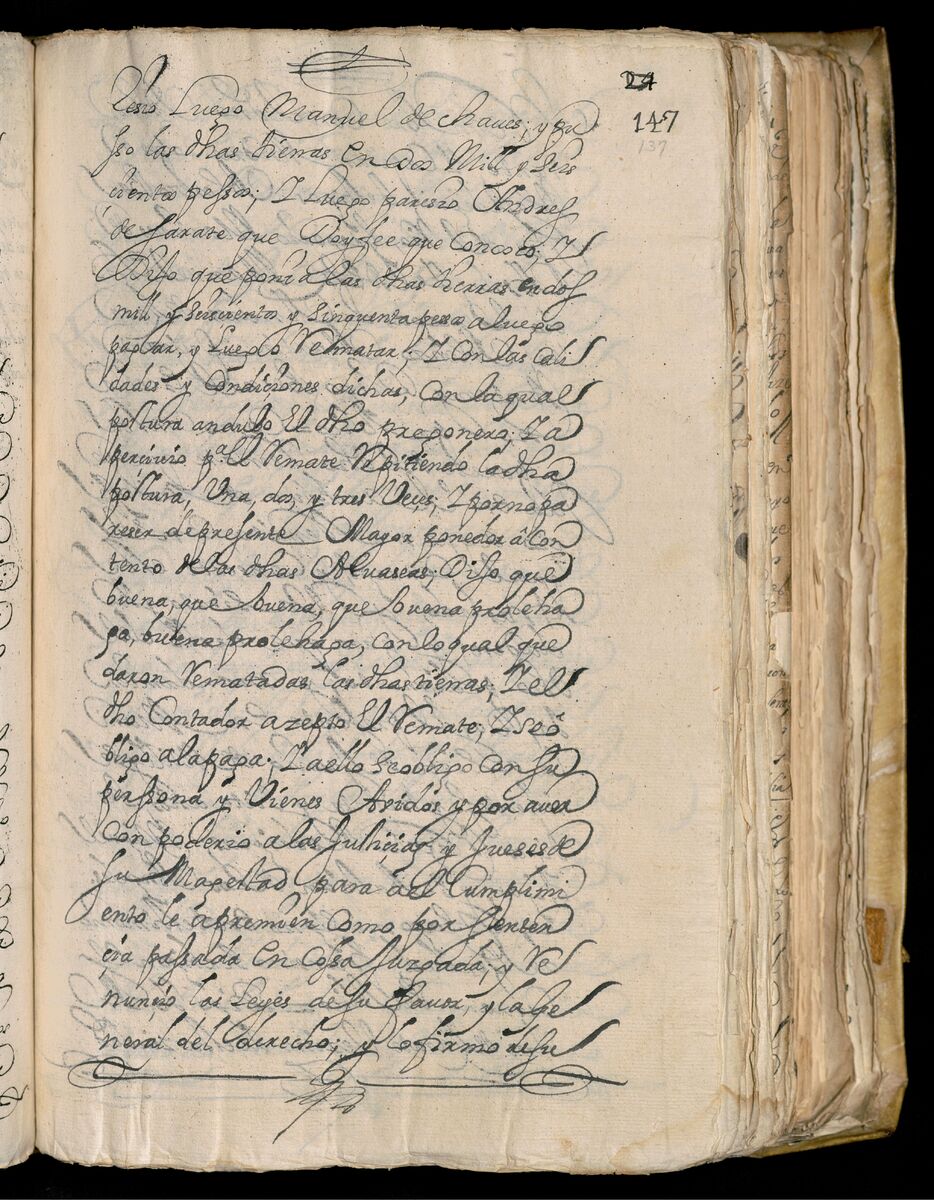 24
147
137
resio Luego Manuel de chaues; y pu
sso las dhas tierras En dos Mill y seis
cientos pessos; Y Luego paresio Andres
de sarate que Doy fee que Conosco, Y
Diso que ponia las dhas tierras en dos
mill y seiscientos y sinquenta pesos a luego
pagar, y Luego Rematar; Y Con las cali
dades y Condiciones dichas, con la qual
postura andubo El dho pregonero; Y a
percivio pa. El Remate Repitiendo la dha
postura, Una, dos, y tres Veçes; Y por no pa
reser de presente Mayor ponedor â Con
tento de las dhas Aluaseas; Diso que
buena, que buena, que buena pro le ha
ga, buena pro le haga, con lo qual que
daron Rematadas las dhas tierras; Y el
dho Contador azepto El Remate, Y se ô
bligo a la paga; Y a ello se obligo Con su
perssona y Vienes Avidos y por aver
con poderio a las Justiçias y Jueses de
su Magestad para â el Cumplimi
ento le apremien Como por senten
çia passada En Cossa Jusgada, y Re
nunçio las Leyes de su fauor, y la ge
neral del derecho; y lo firmô de su